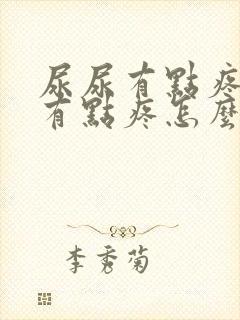 尿尿有點疼
有點疼怎麼
李秀菊